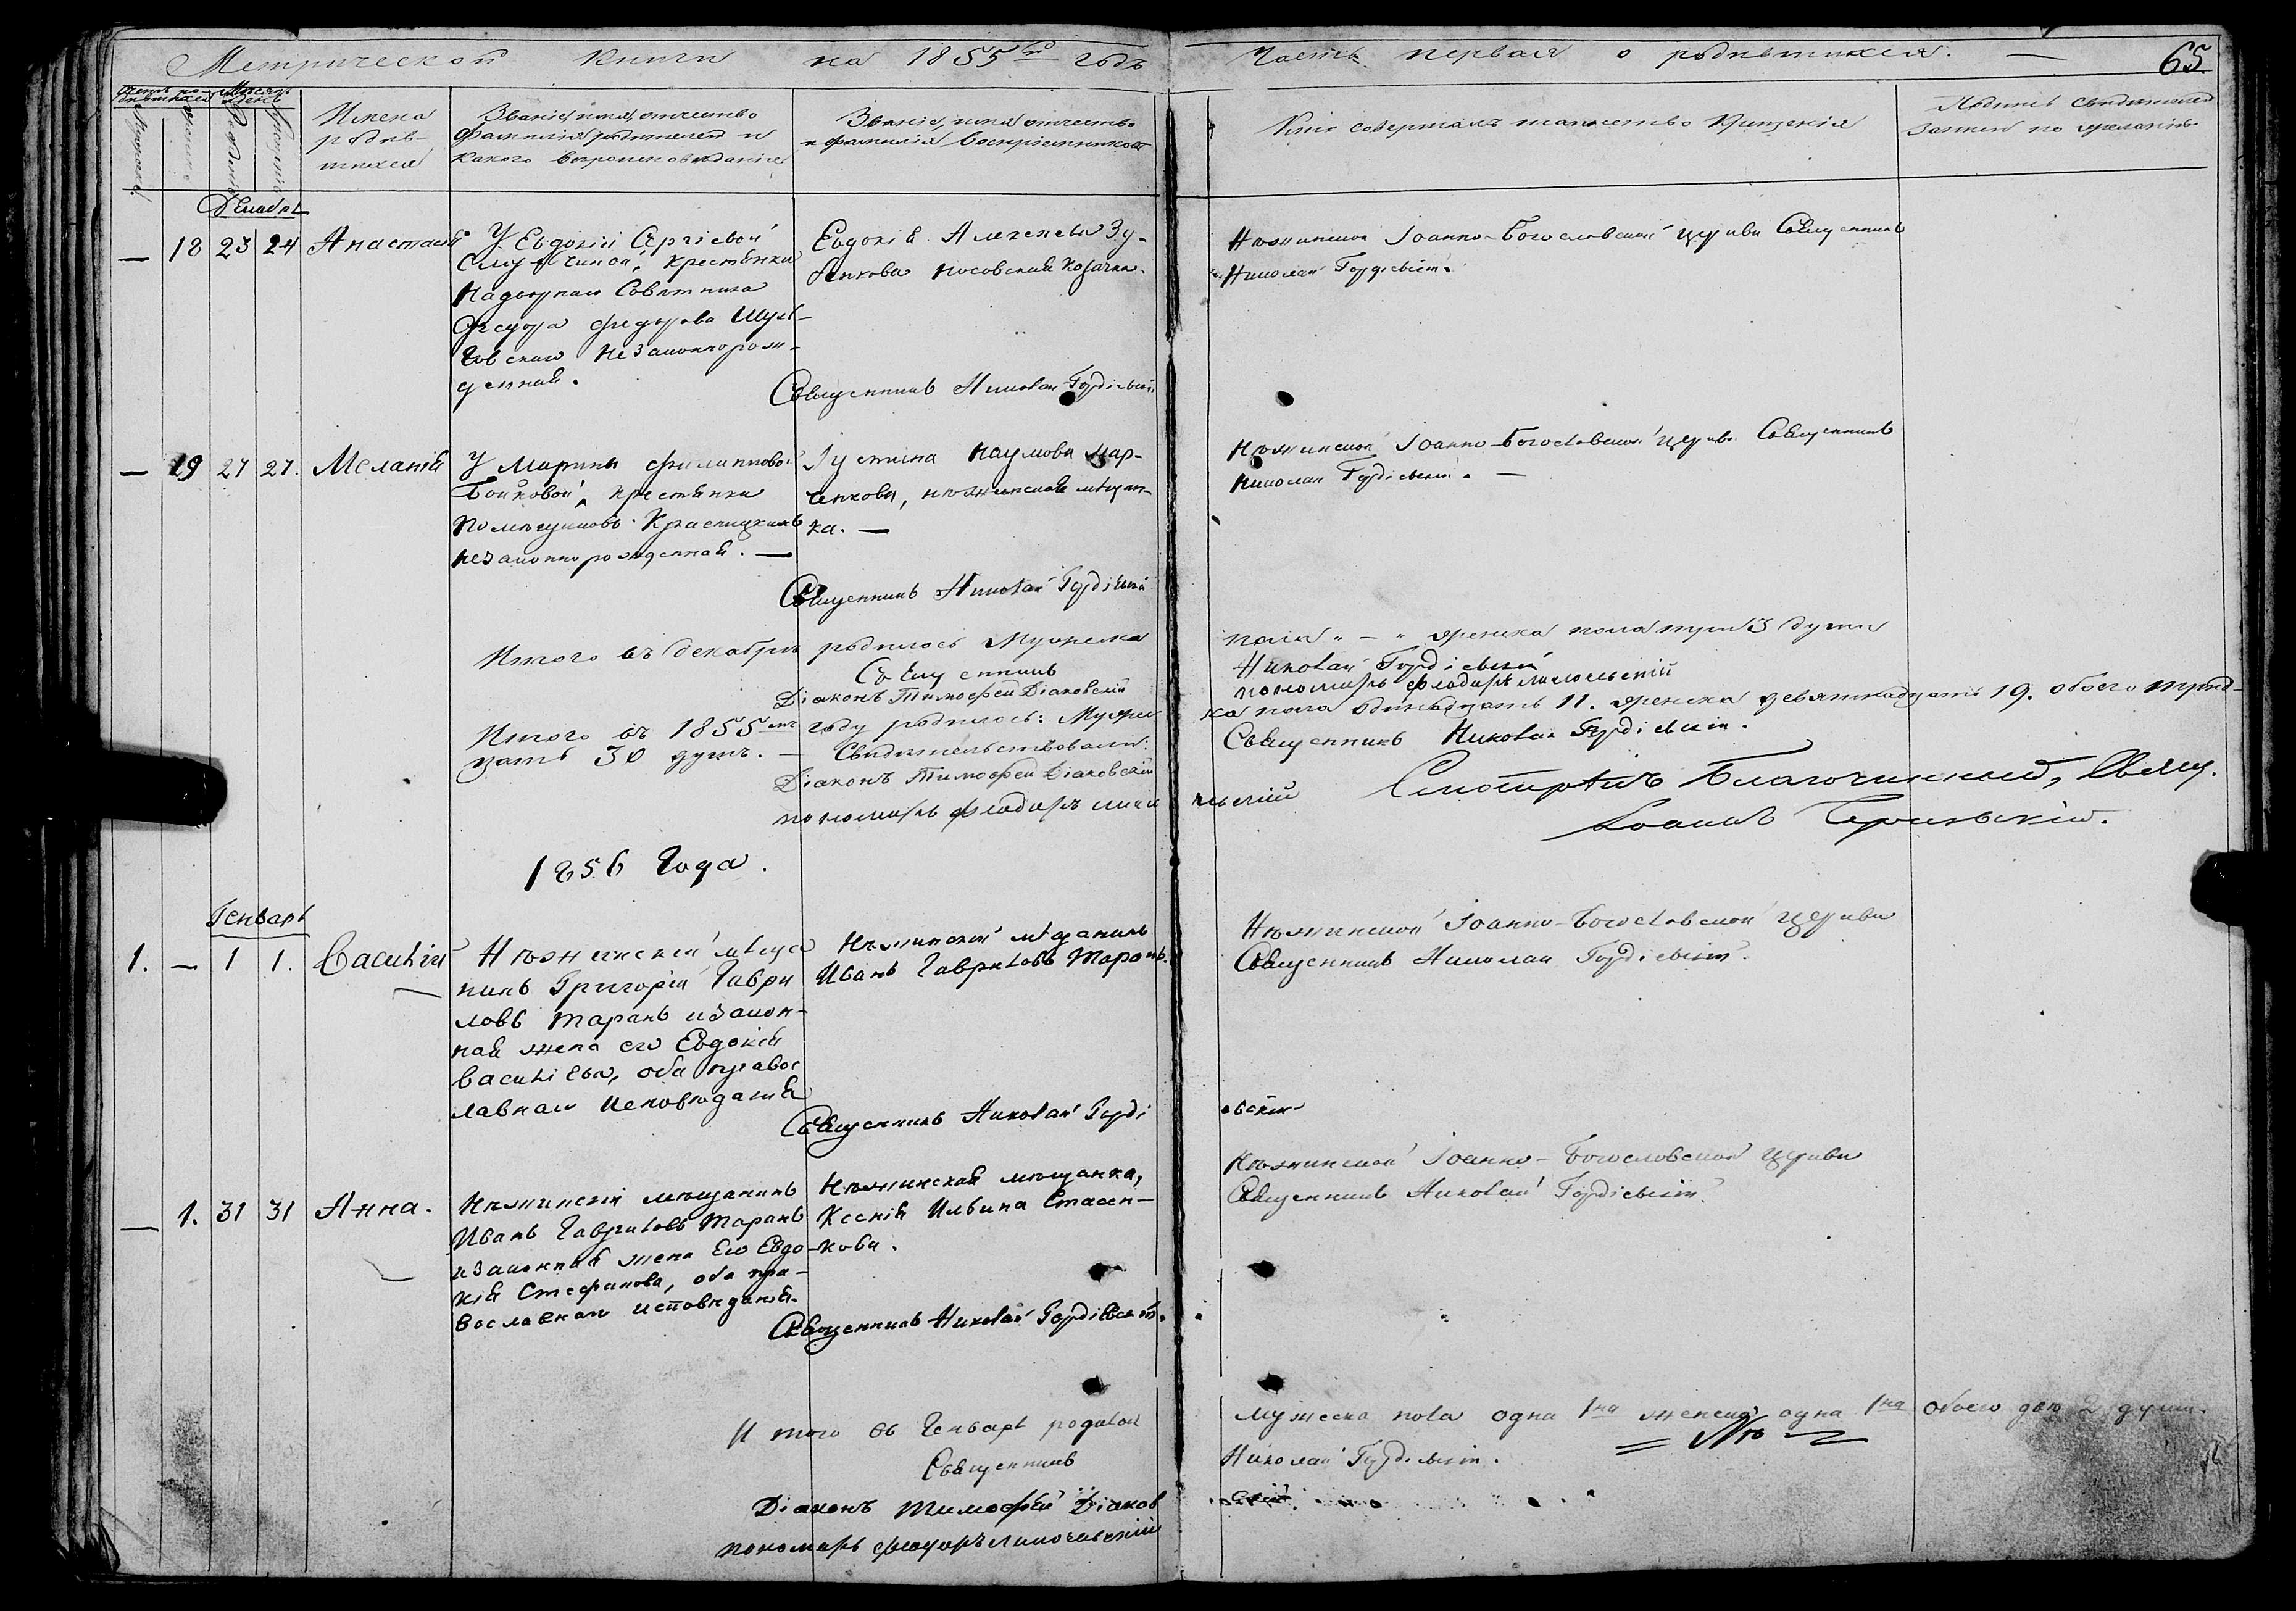 Метрической Книги на 1855го годъ Часть первая о родившихся. — 65
Имена родив-шихся
Званіе, имя, отчество фамилія родителей и какого вѣроисповѣданія
Званіе, имя, отчество и фамилія воспріемниковъ
Кто совершалъ таинство Крещенія
Подпись свидѣтелей записи по желанію
Декабрь
— 18 23 24 Анастасія
У Евдокіи Сергіевой
крестьянки
Надворнаго Совѣтника
Федора Федорова Шуль-
говскаго незаконнорож-
денная.
Евдокія Алексѣева Зу-
бенкова носовская козачка.
Священникъ Николай Гордіевскій
Нѣжинской Іоанно-Богословской церкви Священникъ
Николай Гордіевскій.
— 19 27 27. Меланія
У Марины Филипповой
Бойковой, крестьянки
помѣщиковъ
незаконнорожденная. —
Іустина Наумова Мар-
ченкова, нѣжинская мѣщан-
ка. —
Священникъ Николай Гордіевскій
Нѣжинской Іоанно-Богословской церкви Священникъ
Николай Гордіевскій. —
Итого въ декабрѣ родилось Мужеска пола „ — „ женска пола три 3 души
Священникъ Николай Гордіевскій
Діаконъ Тимофей Діаковскій
пономарь Феодоръ
Итого въ 1855мъ году родилось: Мужес-
ка пола одинадцать 11. женска девятнадцать 19. обоего трид-
цать 30 душъ. —
Свидѣтельствовали: Священникъ Николай Гордіевскій.
Діаконъ Тимофей Діаковскій
пономарь Феодоръ
Смотрѣлъ Благочинный, Свящ.
Іоаннъ
1856 Года.
Генварь
1. — 1 1. Василій
Нѣжинскій мѣща
нинъ Григорій Гаври
ловъ Таранъ и закон-
ная жена его Евдокія
Васильева, оба правос
лавнаго исповѣданія
Нѣжинскій мѣщанинъ
Иванъ Гавриловъ Таранъ.
Священникъ Николай Гордіевскій
Нѣжинской Іоанно-Богословской церкви
Священникъ Николай Гордіевскій.
— 1. 31 31 Анна.
Нѣжинскій мѣщанинъ
Иванъ Гавриловъ Таранъ
и законная жена Его Евдо-
кія Стефанова, оба пра-
вославнаго исповѣданія.
Нѣжинская мѣщанка,
Ксенія Ильина Стасен-
кова.
Священникъ Николай Гордіевскій.
Нѣжинской Іоанно-Богословской церкви
Священникъ Николай Гордіевскій.
Итого въ Генварѣ родилось Мужеска пола одна 1на женска одна 1на Обоего двѣ 2 души.
Священникъ Николай Гордіевскій.
Діаконъ Тимофей Діаковскій
пономарь Феодоръ